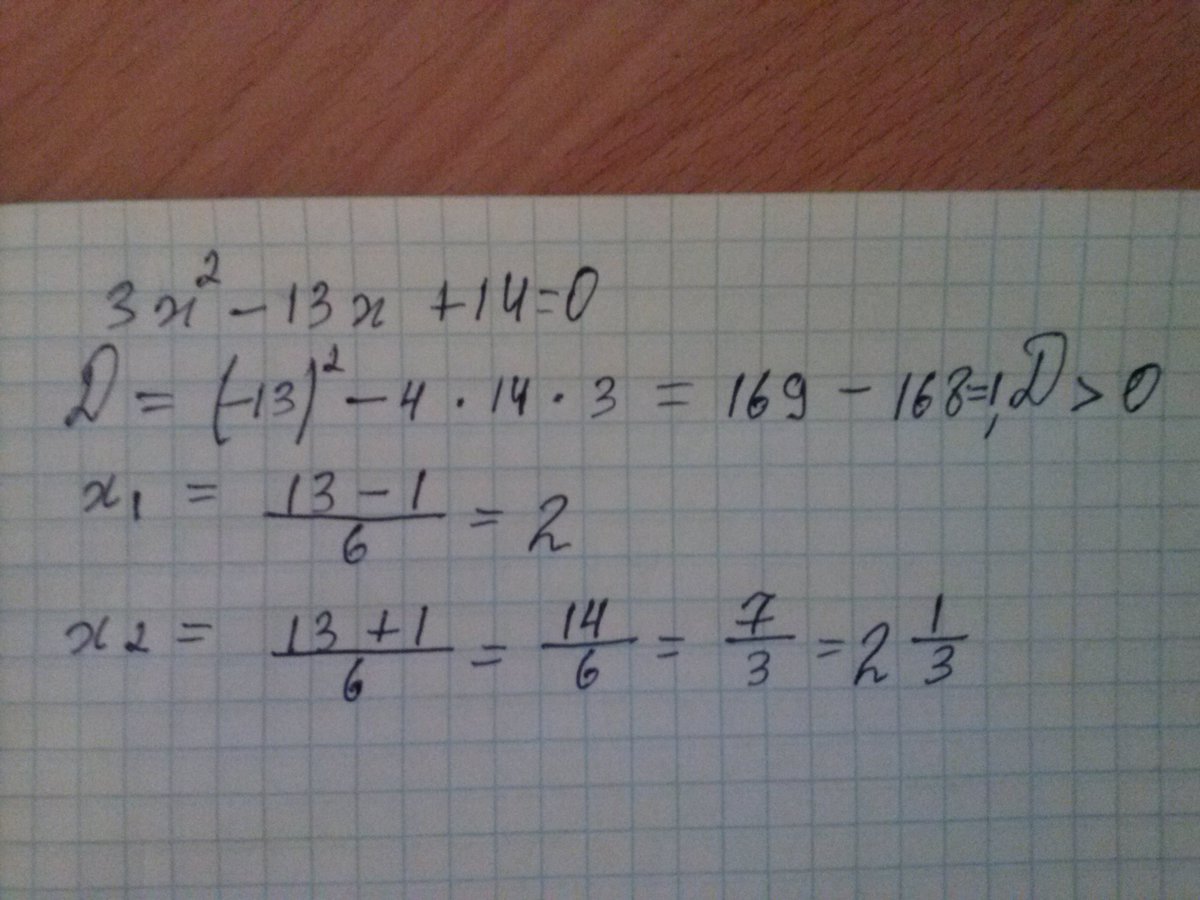 3x² - 13x + 14 = 0
D = (-13)² - 4 · 14 · 3 = 169 - 168 = 1, D > 0
x₁ = \frac{13 - 1}{6} = 2
x₂ = \frac{13 + 1}{6} = \frac{14}{6} = \frac{7}{3} = 2\frac{1}{3}